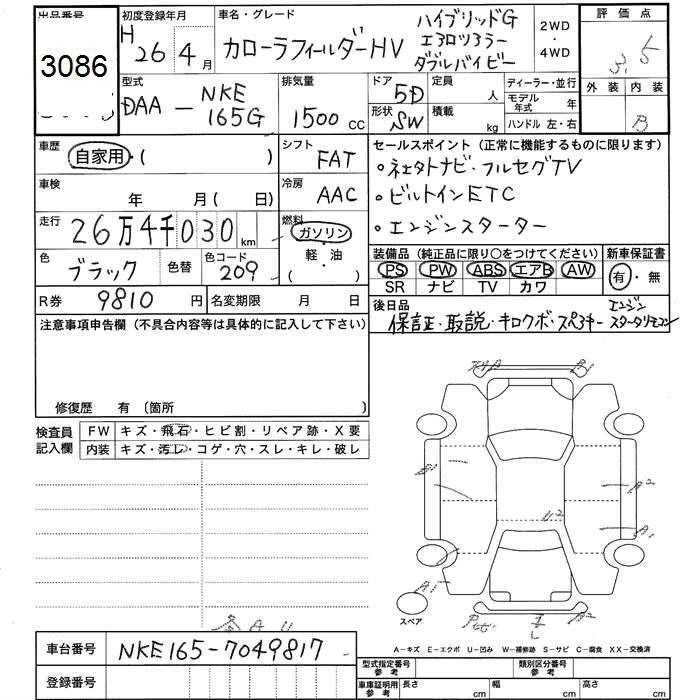 出品番号 初度登録年月 車名・グレード 評価点
3086 H26 4月 カローラフィールダーHV ハイブリッドG 2WD・4WD 3.5
エアロツアラー
ダブルバイビー
外装 内装
B
型式 排気量 ドア 定員 ディーラー・並行
DAA－NKE165G 1500cc 5D 人 モデル年式 年
形状 積載 ハンドル 左・右
SW kg
車歴 シフト セールスポイント(正常に機能するものに限ります)
自家用・( ) FAT ・ネェタトナビ・フルセグTV
車検 冷房 ・ビルトインETC
年 月( 日) AAC ・エンジンスターター
走行 燃料
26万4千030km ガソリン・軽油( )
装備品(純正品に限り○をつけてください) 新車保証書
色 色替 色コード PS PW ABS エアB AW 有・無
ブラック 209 SR ナビ TV カワ
R券 9810円 名変期限 月 日 後日品 エンジン
保証・取説・キロクボ・スペアキー スタータリモコン
注意事項申告欄(不具合内容等は具体的に記入して下さい)
修復歴 有 〔箇所 〕
検査員記入欄 FW キズ・飛石・ヒビ割・リペア跡・X要
内装 キズ・汚レ・コゲ・穴・スレ・キレ・破レ
A1
B1
A2
U2
A1
A1
A2
スペア
A－キズ E－エクボ U－凹み W－補修跡 S－サビ C－腐食 XX－交換済
車台番号 NKE165-7049817
型式指定番号参考 類別区分番号参考
登録番号 車庫証明用参考 長さ cm 幅 cm 高さ cm